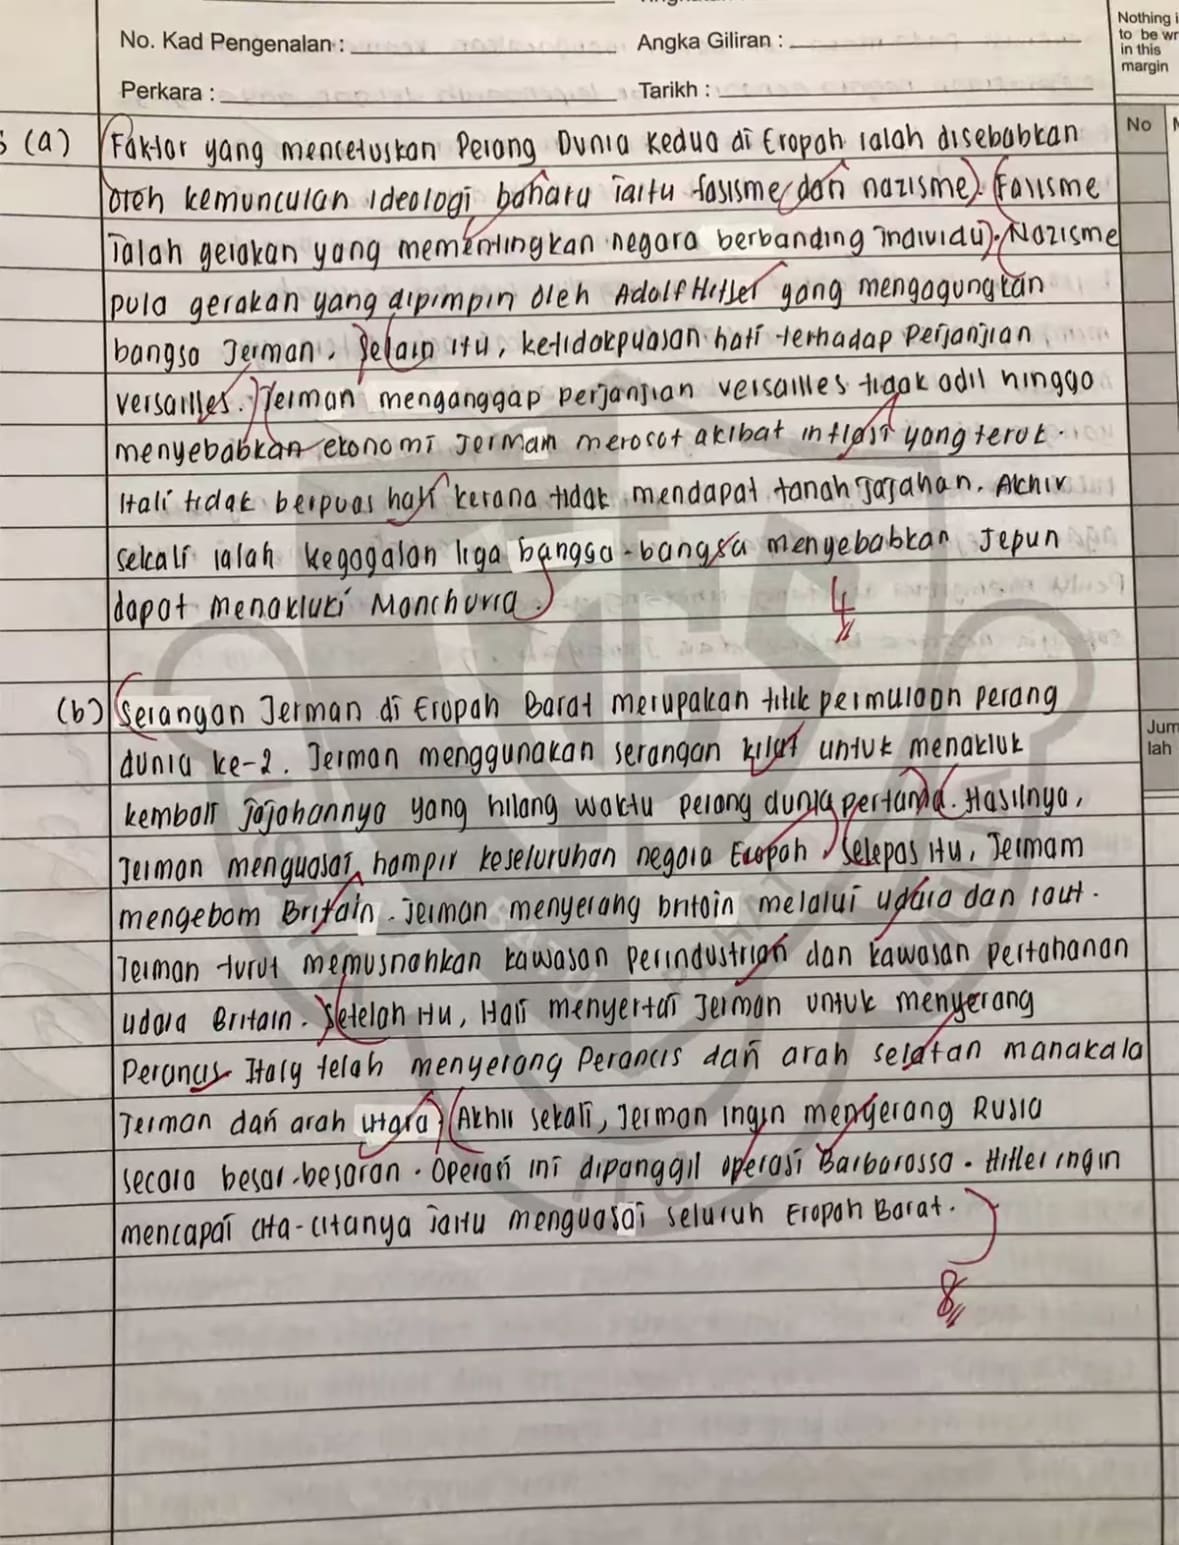 Nothing i
to be wr
in this
margin
No. Kad Pengenalan :
Angka Giliran :
Perkara :
Tarikh :
No
(a) Faktor yang mencetuskan Perang Dunia Kedua di Eropah ialah disebabkan
oleh kemunculan ideologi baharu iaitu fasisme dan nazisme. Fasisme
ialah gerakan yang mementingkan negara berbanding individu. Nazisme
pula gerakan yang dipimpin oleh Adolf Hitler yang mengagungkan
bangsa Jerman. Selain itu, ketidakpuasan hati terhadap Perjanjian
Versailles. Jerman menganggap perjanjian versailles tidak adil hingga
menyebabkan ekonomi Jerman merosot akibat inflasi yang teruk.
Itali tidak berpuas hati kerana tidak mendapat tanah jajahan. Akhir
sekali ialah kegagalan liga bangsa-bangsa menyebabkan Jepun
dapat menakluki Manchuria.
4
(b) Serangan Jerman di Eropah Barat merupakan titik permulaan perang
dunia ke-2. Jerman menggunakan serangan kilat untuk menakluk
kembali jajahannya yang hilang waktu perang dunia pertama. Hasilnya,
Jerman menguasai hampir keseluruhan negara Eropah. Selepas itu, Jermam
mengebom Britain. Jerman menyerang britain melalui udara dan laut.
Jerman turut memusnahkan kawasan perindustrian dan kawasan pertahanan
udara Britain. Setelah itu, Itali menyertai Jerman untuk menyerang
Perancis. Italy telah menyerang Perancis dari arah selatan manakala
Jerman dari arah utara. Akhir sekali, Jerman ingin menyerang Rusia
secara besar-besaran. Operasi ini dipanggil operasi Barbarossa. Hitler ingin
mencapai cita-citanya iaitu menguasai seluruh Eropah Barat.
8
Jum
lah